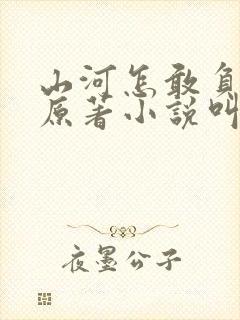 山河怎敢負
原著小說叫
夜墨公子